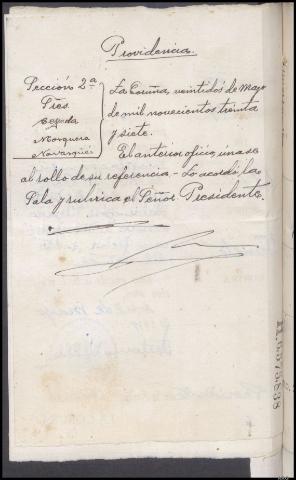 Providencia.
Sección 2ª
Sres.
Cepeda
Morquera
Navarqués
La Coruña, veintidós de Mayo
de mil novecientos treinta
y siete.
El anterior oficio, únase
al rollo de su referencia - Lo acordó la
Sala y rubrica el Señor Presidente.